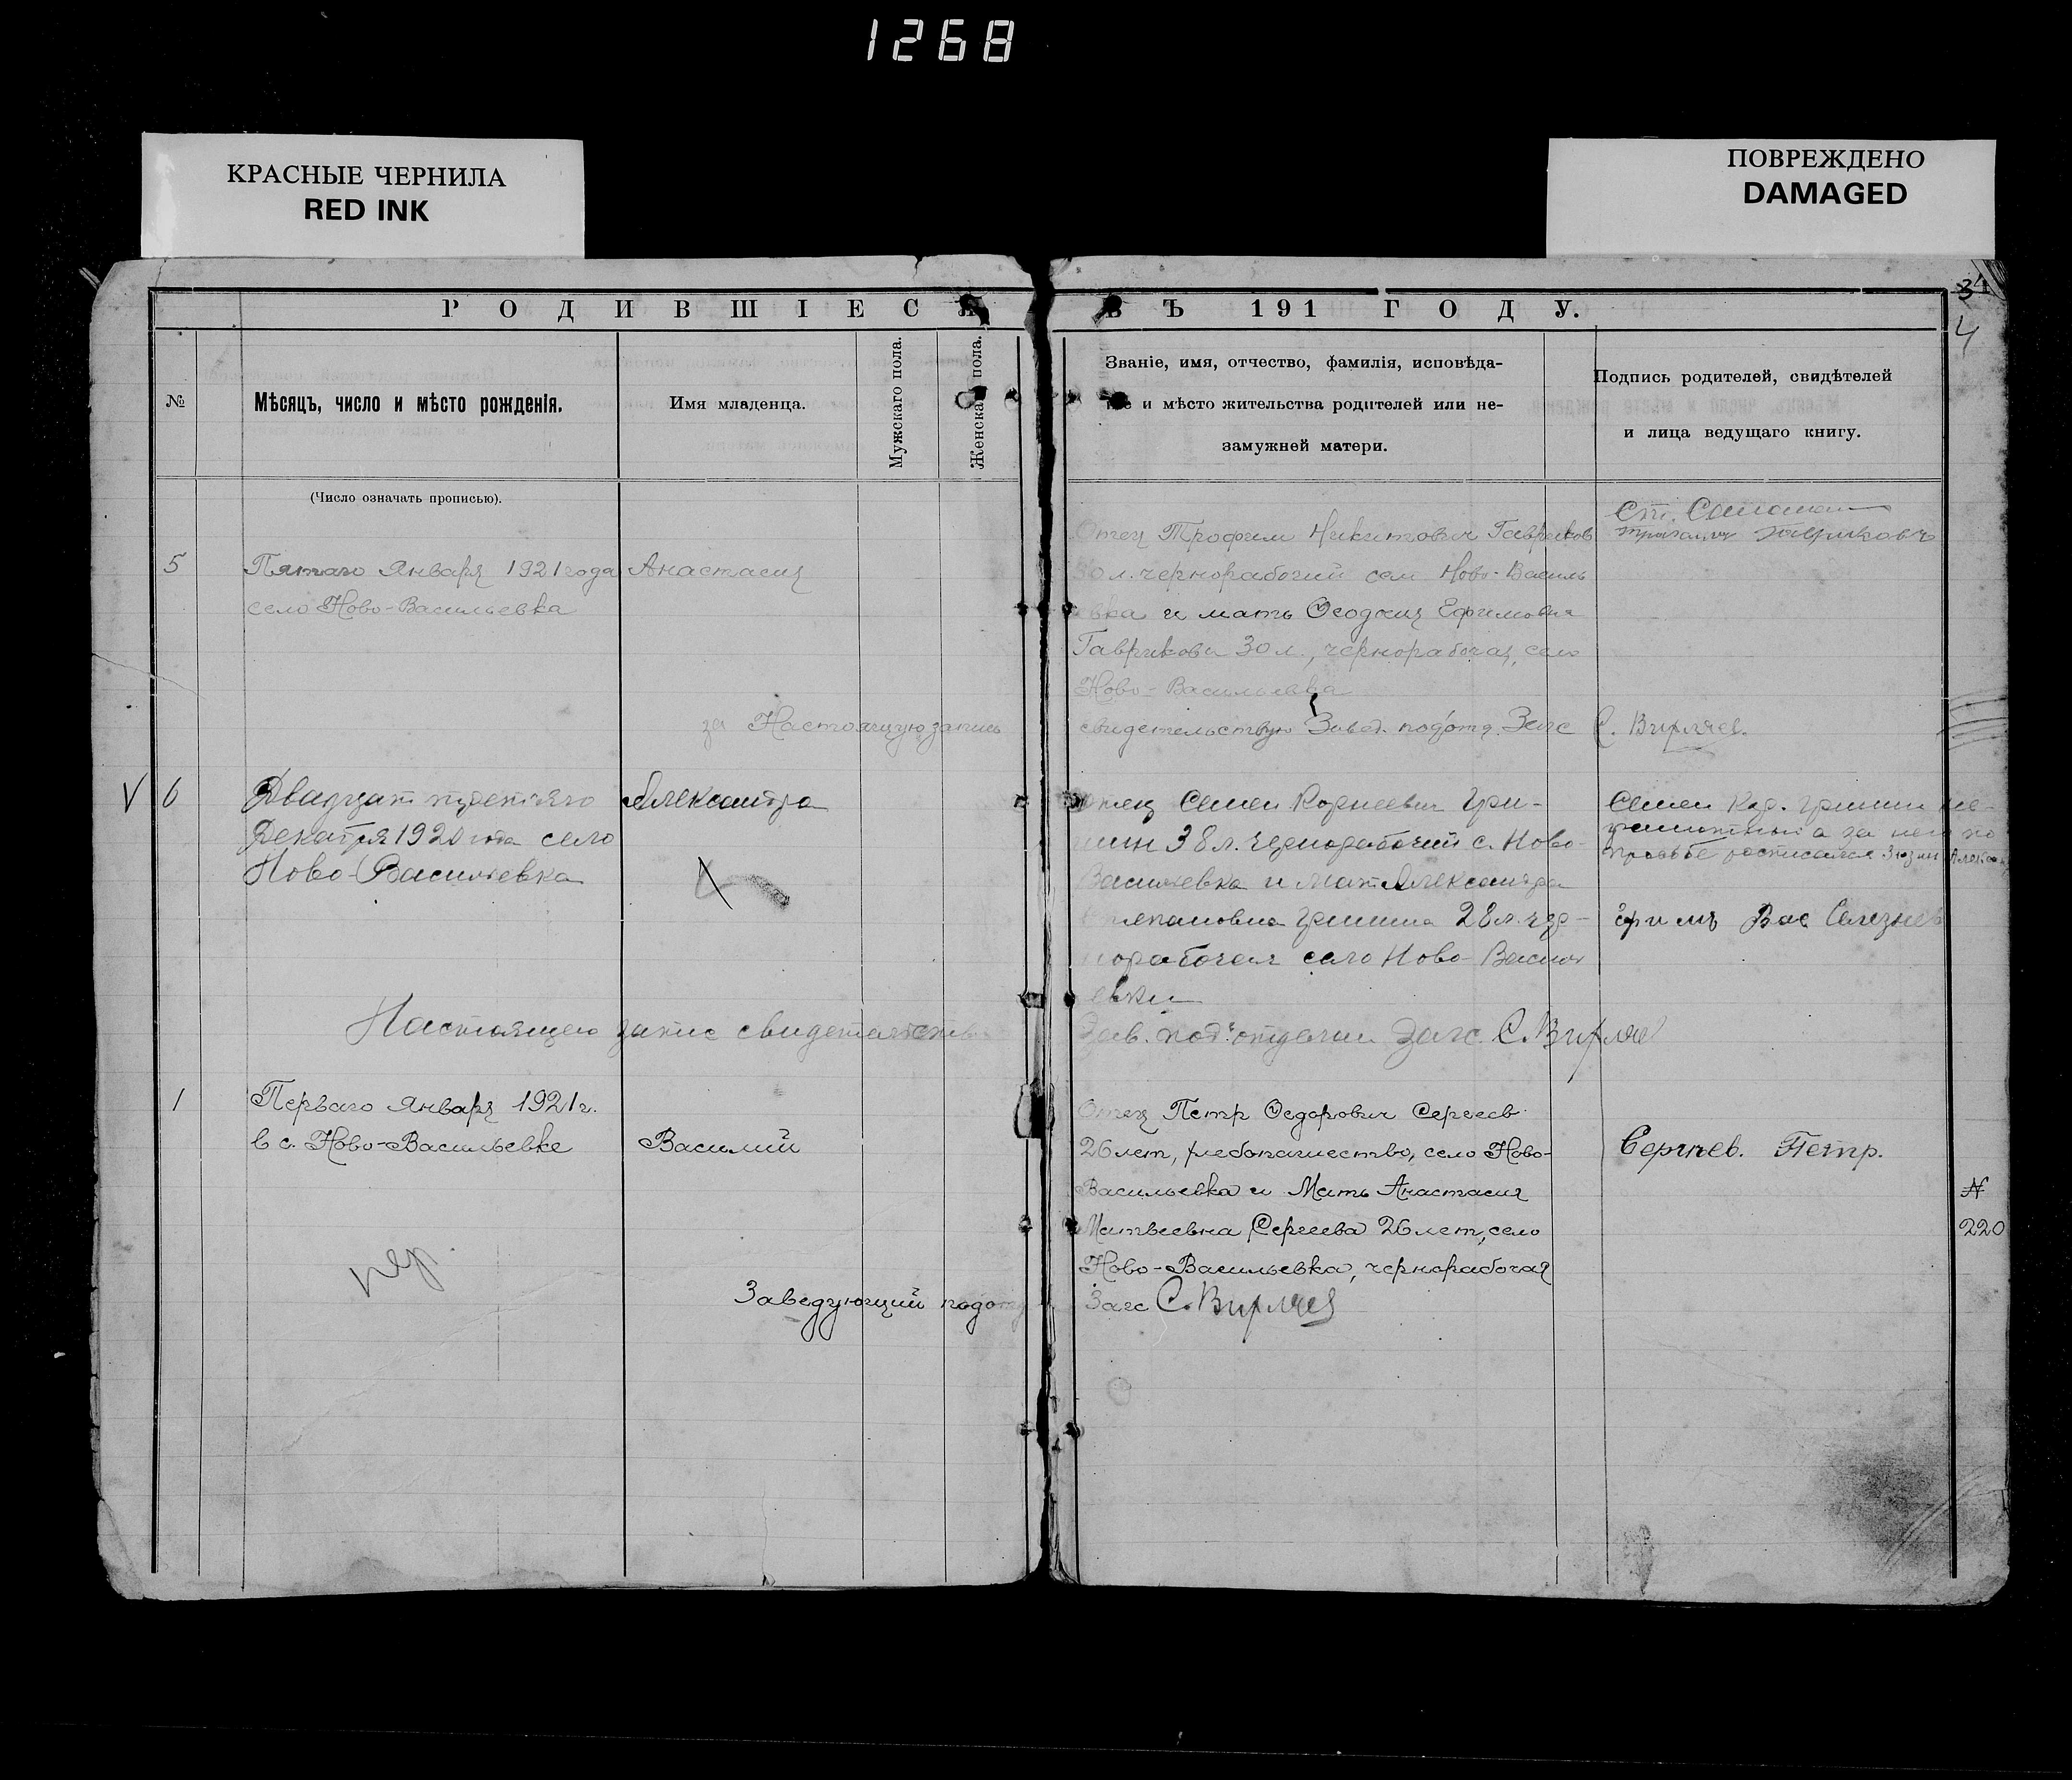 1268
КРАСНЫЕ ЧЕРНИЛА
RED INK
ПОВРЕЖДЕНО
DAMAGED
РОДИВШІЕСЯ ВЪ 191 ГОДУ.
34
4
№
Мѣсяцъ, число и мѣсто рожденія.
Имя младенца.
Мужскаго пола.
Женскаго пола.
Званіе, имя, отчество, фамилія, исповѣда-
ніе и мѣсто жительства родителей или не-
замужней матери.
Подпись родителей, свидѣтелей
и лица ведущаго книгу.
(Число означать прописью).
5
Пятаго Января 1921 года
село Ново-Васильевка
Анастасия
Отец Трофим Никитович Гавриков
30 л. чернорабочий сел Ново-Василь
евка и мать Ѳеодосия Ефимовна
Гаврикова 30 л., чернорабочая, село
Ново-Васильевка
Гавриковъ
за Настоящую запись
свидетельствую Завед. подотд. Загс С. Вирляев.
V 6
Двадцат третяго
Декабря 1920 года село
Ново-Васильевка
Александра
Отец Семен Корнеевич Гри-
шин 38 л. чернорабочий с. Ново-
Васильевка и мат Александра
Степановна Гришина 28 л. чер-
норабочая село Ново-Василь
евки
Семен Кор. Гришин не-
грамотный а за него по
просьбе росписался
Вас Селезнев
Настоящею запис свидетельств
Зав. под. отделом Загс. С. Вирляе
1
Перваго Января 1921 г.
в с. Ново-Васильевке
Василий
Отец Петр Ѳедорович Сергеев
26 лет, хлебопашество, село Ново-
Васильевка и Мать Анастасия
Матвеевна Сергеева 26 лет, село
Ново-Васильевка, чернорабочая
Сергеев. Петр.
N
220
Заведующий подотд Загс С. Вирляев